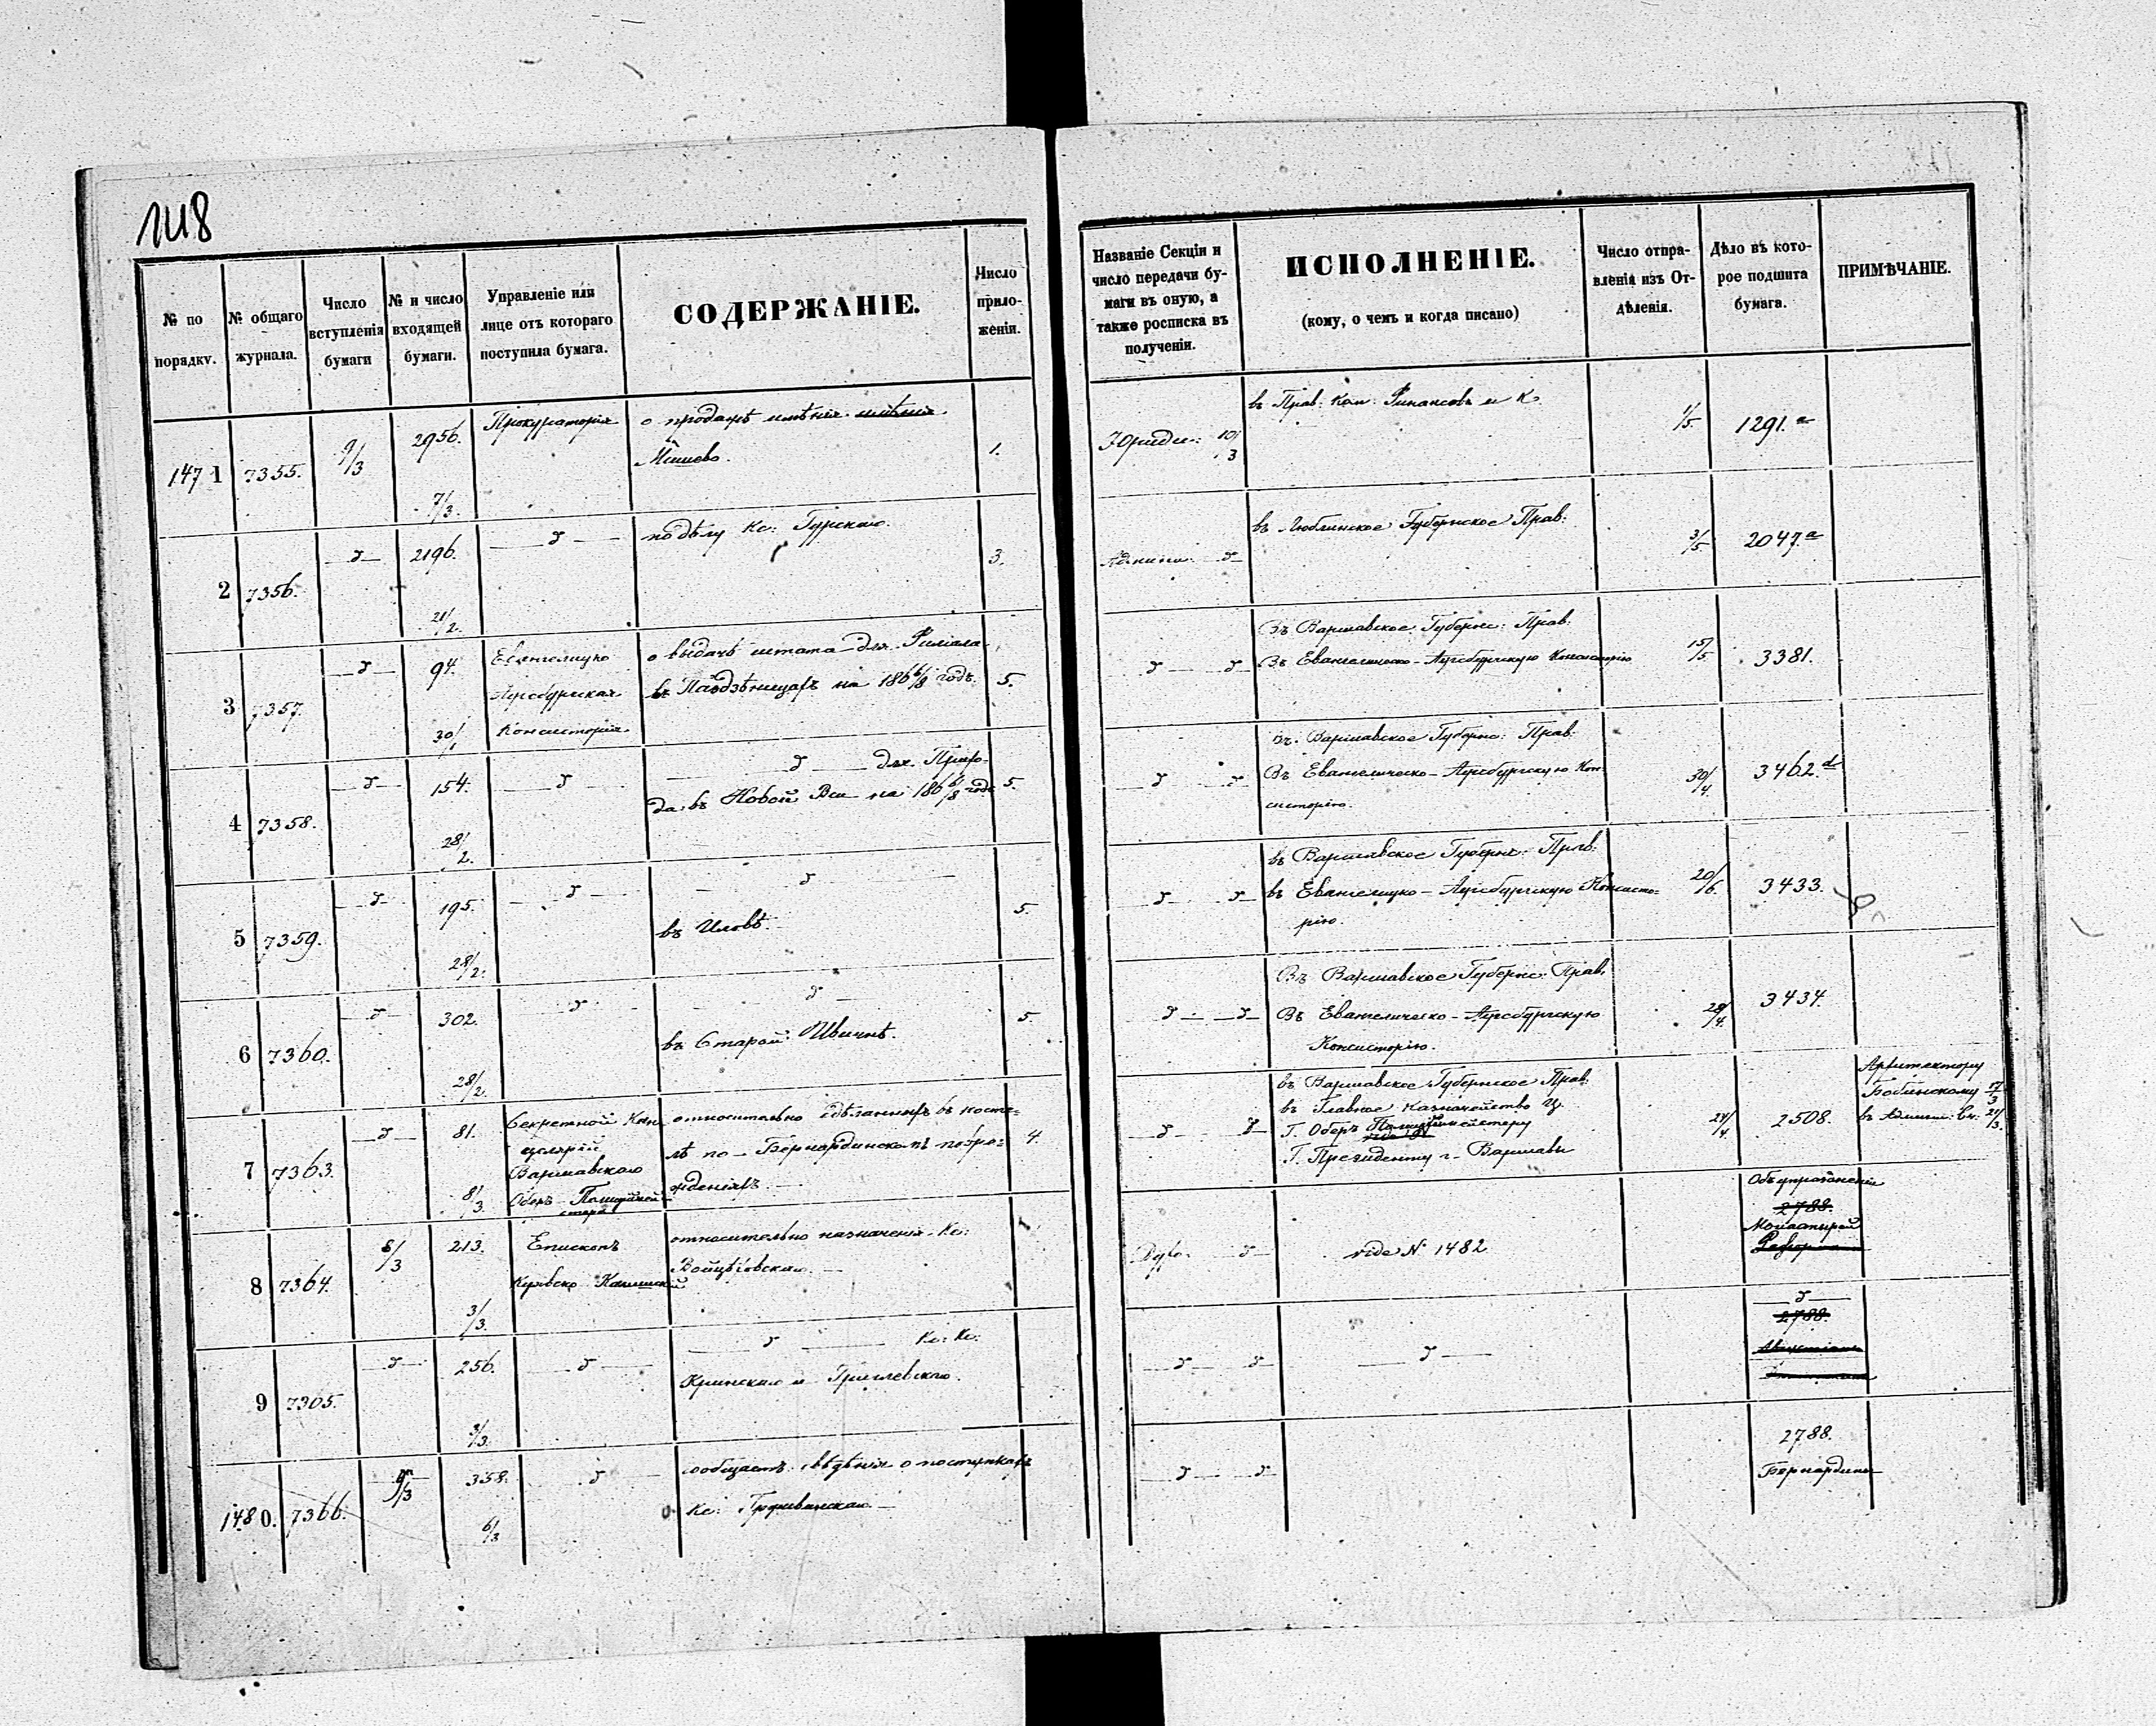 148
№ по порядку.
№ общаго журнала.
Число вступленія бумаги
№ и число входящей бумаги.
Управленіе или лице отъ котораго поступила бумага.
СОДЕРЖАНІЕ.
Число приложеніи.
Названіе Секціи и число передачи бумаги въ оную, а также росписка въ полученіи.
ИСПОЛНЕНІЕ.
(кому, о чемъ и когда писано)
Число отправленія изъ Отдѣленія.
Дѣло въ которое подшита бумага.
ПРИМѢЧАНІЕ.
1471 7355. 9/3 2956. 7/3 Прокураторія о продажѣ имѣнія 1. Юриди: 10/3 въ Прав: Ком: Финансовъ и К. 1/5 1291.а
2 7356. д 2196. 21/2. д по дѣлу Кс: Гурскаго. 3. д въ Люблинское Губернское Прав: 3/5 2047.а
3 7357. д 94. 30/1 Евангелицко Аугсбургская Консисторія. о выдачѣ штата для Филіала въ на 186 6/8 годъ. 5. д д Въ Варшавское Губернс: Прав:
Въ Евангелическо-Аугсбургскую Консисторію 15/5 3381.
4 7358. д 154. 28/2. д д для Прихода въ Новой Вси на 186 6/8 годъ 5. д д Въ Варшавское Губернс: Прав:
Въ Евангелическо-Аугсбургскую Консисторію. 30/4. 3462.d
5 7359. д 195. 28/2. д д
въ Иловѣ. 5. д д въ Варшавское Губерн: Прав:
въ Евангелицко-Аугсбургскую Консисторію. 20/6. 3433.
6 7360. д 302. 28/2. д д
въ Старой Ивичнѣ. 5. д д Въ Варшавское Губернс: Прав,
Въ Евангелическо-Аугсбургскую
Консисторію. 28/4. 3434.
7 7363. д 81. 8/3. Секретной Канцелярій
Варшавскаго
Оберъ-Полицмейстера относительно сдѣланныхъ въ костелѣ по-Бернардинскомъ поврежденіяхъ. 4. д д въ Варшавское Губернское Прав:
въ Главное Казначейство Ц.
Г. Оберъ Полицмейстеру
Г. Президенту г. Варшавы 24/4. 2508. Архитектору
Бобинскому 17/3
въ Админ: 21/3.
8 7364. 8/3 213. 3/3. Епископъ
Куявско Калишскій относительно назначенія Кс:
Войцѣховскаго. Духо. д vide N 1482 Объ упраздненіи
2788.
Монастырей
9 7365. д 256. 3/3. д д Кс: Кс:
Кринскаго и д д д д
2788.
1480. 7366. 9/3 358. 6/3 д сообщаетъ свѣдѣнія о поступкахъ
Кс: д д 2788.
Бернардины